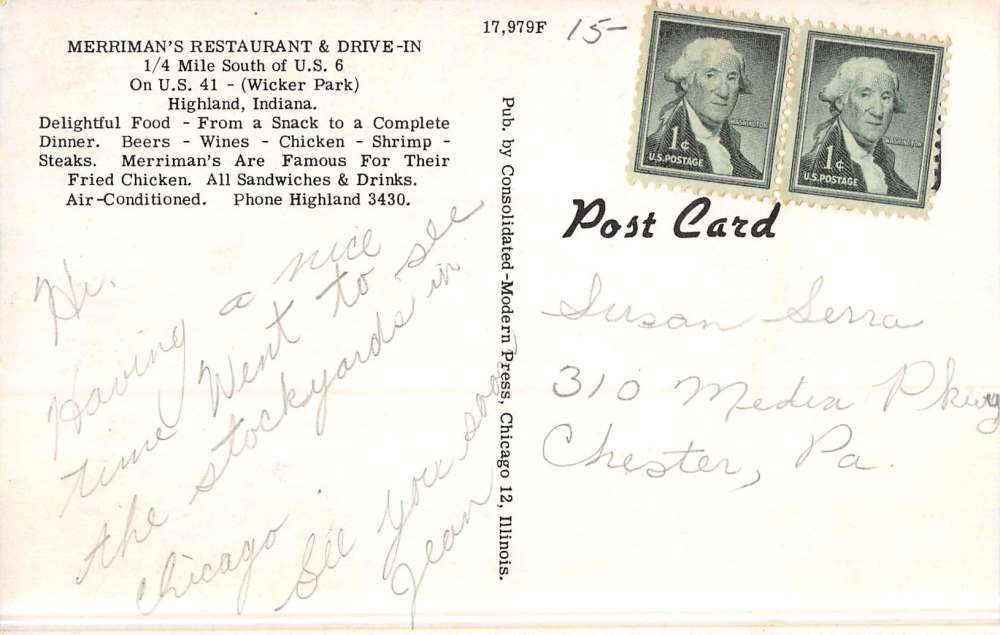 MERRIMAN'S RESTAURANT & DRIVE-IN
1/4 Mile South of U.S. 6
On U.S. 41 - (Wicker Park)
Highland, Indiana.
Delightful Food - From a Snack to a Complete
Dinner. Beers - Wines - Chicken - Shrimp -
Steaks. Merriman's Are Famous For Their
Fried Chicken. All Sandwiches & Drinks.
Air-Conditioned. Phone Highland 3430.
Hi.
Having a nice
time Went to see
the stockyards in
Chicago
See you soon
Jean
17,979F
15-
Pub. by Consolidated-Modern Press, Chicago 12, Illinois.
WASHINGTON
1¢
U.S. POSTAGE
WASHINGTON
1¢
U.S. POSTAGE
Post Card
Susan Serra
310 Media Pkwy
Chester, Pa.